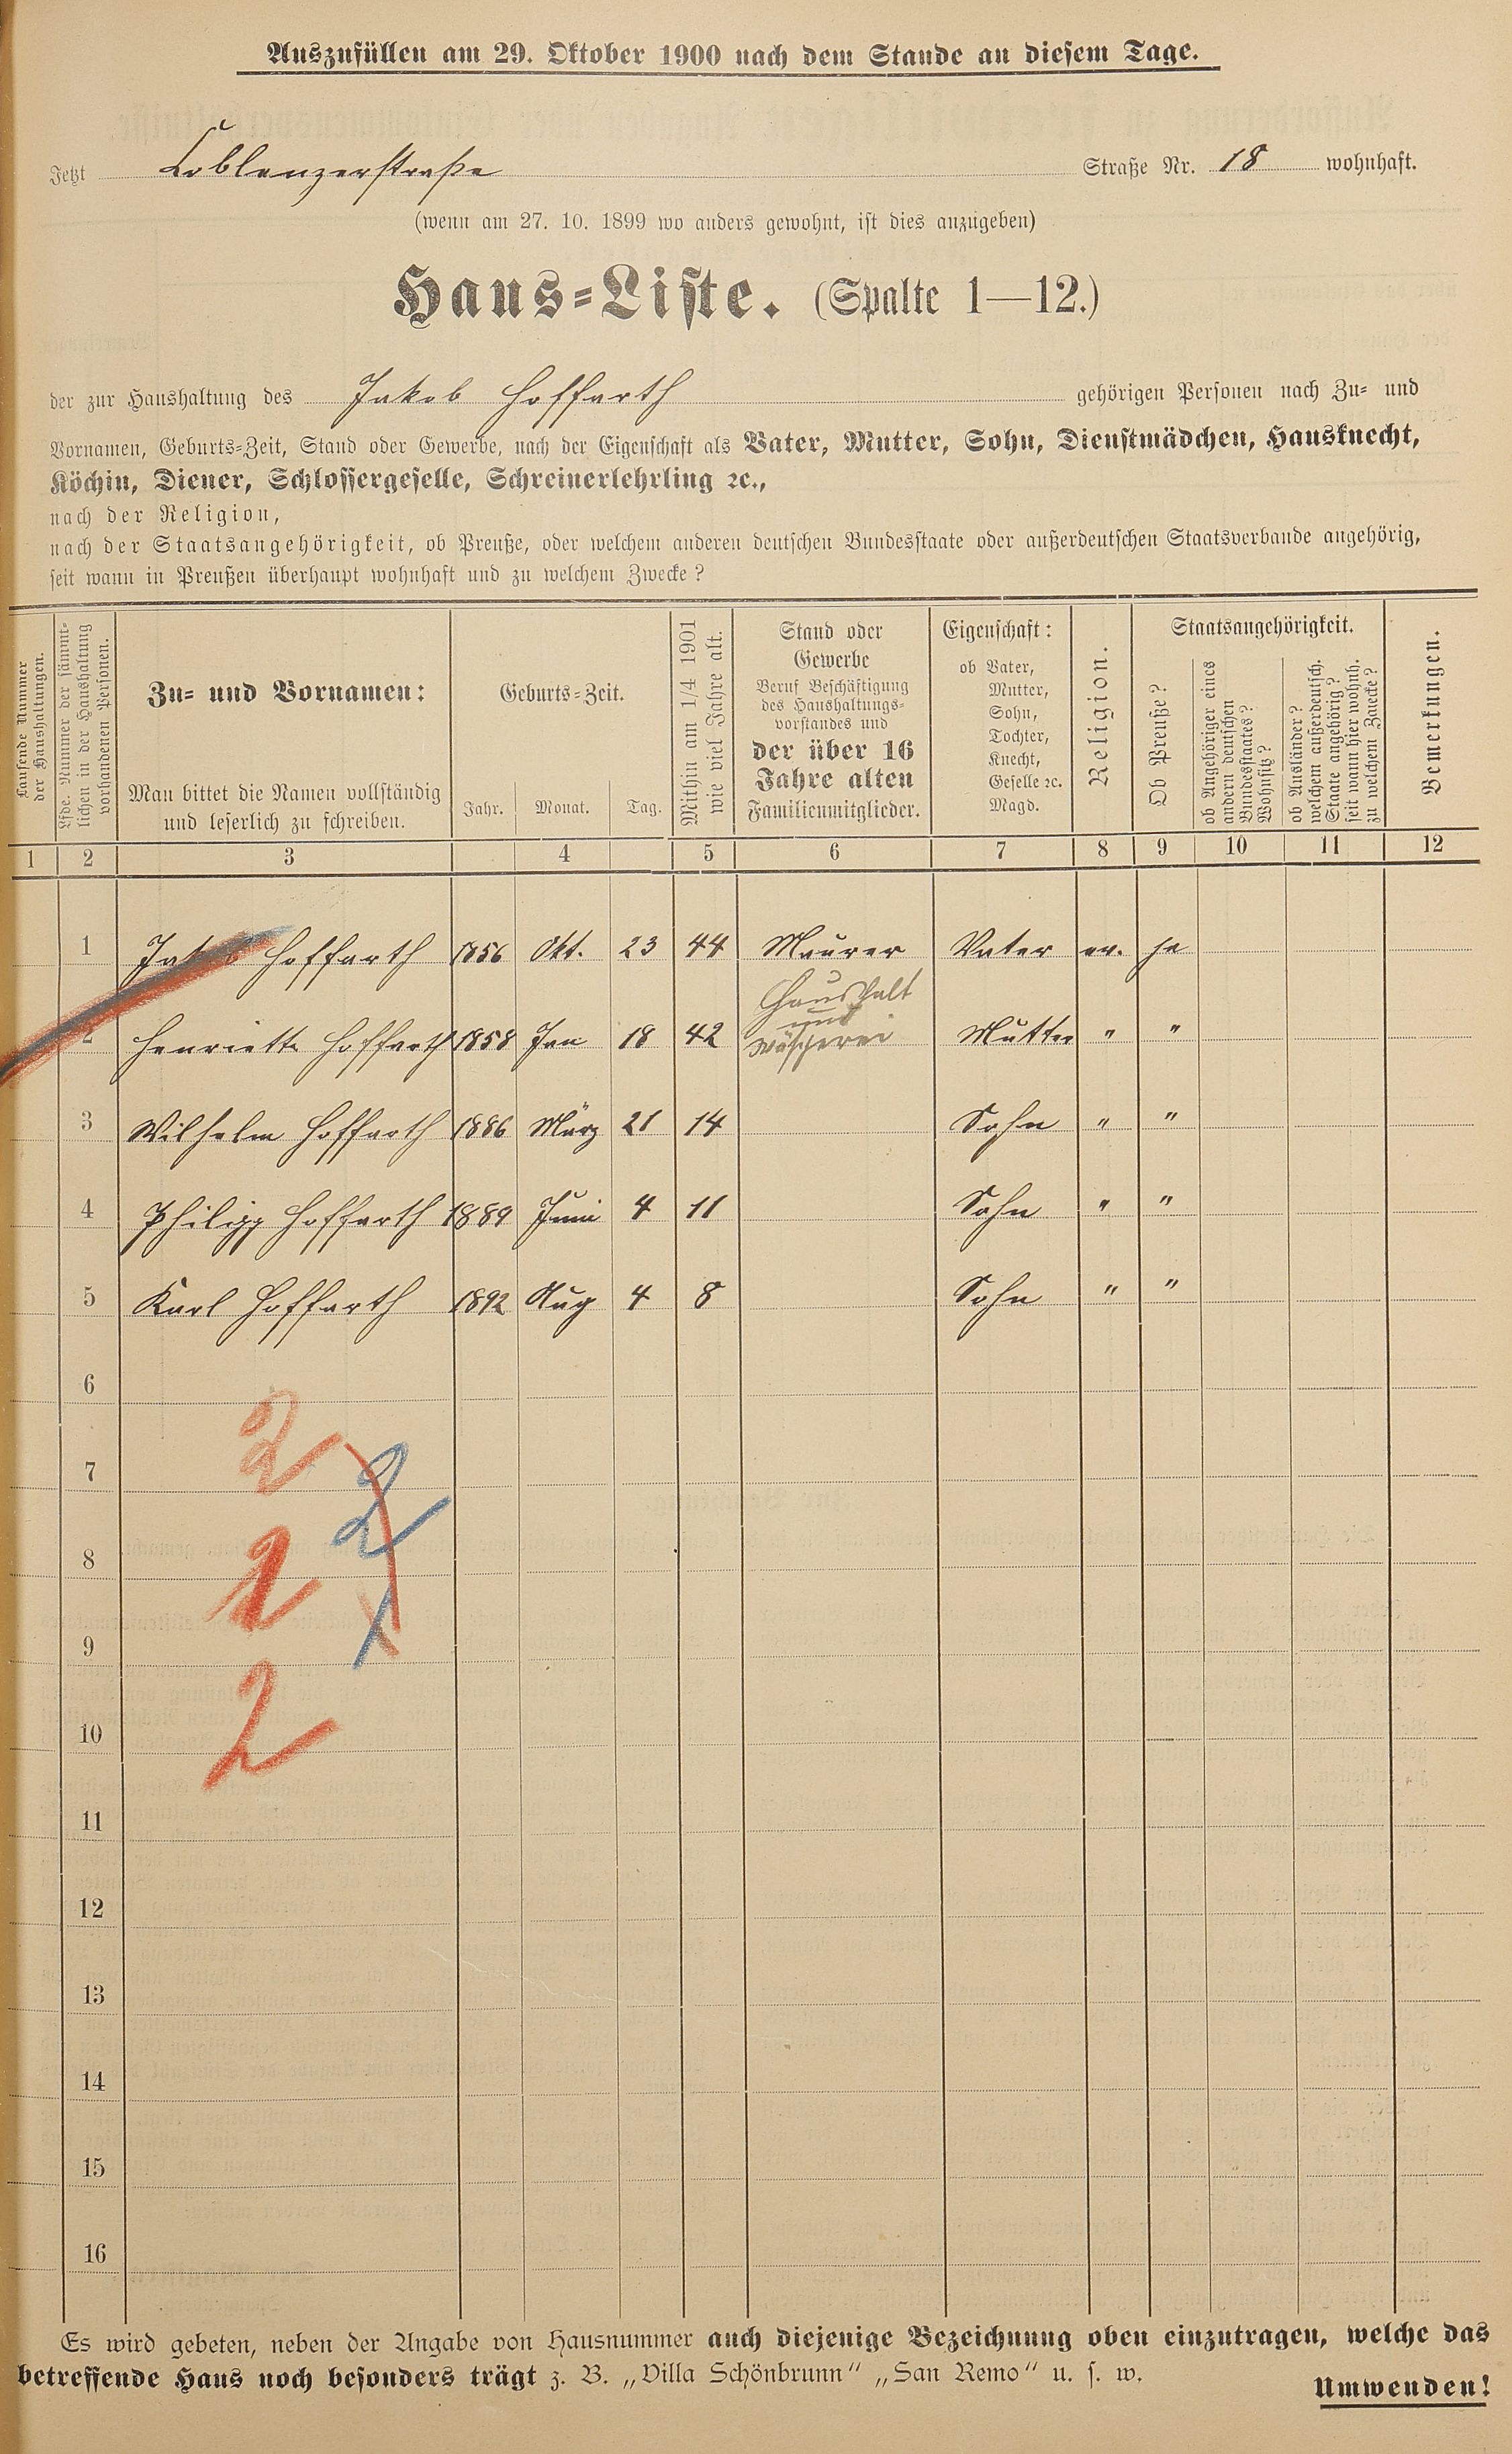 Auszufüllen am 29. Oktober 1900 nach dem Stande an diesem Tage.
Jetzt Coblenzerstraße Straße Nr. 18 wohnhaft.
(wenn am 27. 10. 1899 wo anders gewohnt, ist dies anzugeben)
Haus-Liste. (Spalte 1—12.)
der zur Haushaltung des Jakob Hoffarth gehörigen Personen nach Zu- und
Vornamen, Geburts-Zeit, Stand oder Gewerbe, nach der Eigenschaft als Vater, Mutter, Sohn, Dienstmädchen, Hausknecht,
Köchin, Diener, Schlossergeselle, Schreinerlehrling ꝛc.,
nach der Religion,
nach der Staatsangehörigkeit, ob Preuße, oder welchem anderen deutschen Bundesstaate oder außerdeutschen Staatsverbande angehörig,
seit wann in Preußen überhaupt wohnhaft und zu welchem Zwecke?
Laufende Nummer
der Haushaltungen.
Lfde. Nummer der sämmt-
lichen in der Haushaltung
vorhandenen Personen.
Zu- und Vornamen:
Man bittet die Namen vollständig
und leserlich zu schreiben.
Geburts-Zeit.
Jahr. Monat. Tag.
Mithin am 1/4 1901
wie viel Jahre alt.
Stand oder
Gewerbe
Beruf Beschäftigung
des Haushaltungs-
vorstandes und
der über 16
Jahre alten
Familienmitglieder.
Eigenschaft:
ob Vater,
Mutter,
Sohn,
Tochter,
Knecht,
Geselle ꝛc.
Magd.
Religion.
Staatsangehörigkeit.
Ob Preuße?
ob Angehöriger eines
andern deutschen
Bundesstaates?
Wohnsitz?
ob Ausländer?
welchem außerdeutsch.
Staate angehörig?
seit wann hier wohnh.
zu welchem Zwecke?
Bemerkungen.
1 2 3 4 5 6 7 8 9 10 11 12
1 Jakob Hoffarth 1856 Okt. 23 44 Maurer Vater ev. ja
Haushalt
und
Wäscherei
2 Henriette Hoffarth 1858 Jan 18 42 Mutter " "
3 Wilhelm Hoffarth 1886 März 21 14 Sohn " "
4 Philipp Hoffarth 1889 Juni 4 11 Sohn " "
5 Karl Hoffarth 1892 Aug 4 8 Sohn " "
6
2
7
2
8
2
9
2
10
11
12
13
14
15
16
Es wird gebeten, neben der Angabe von Hausnummer auch diejenige Bezeichnung oben einzutragen, welche das
betreffende Haus noch besonders trägt z. B. „Villa Schönbrunn“ „San Remo“ u. s. w.
Umwenden!